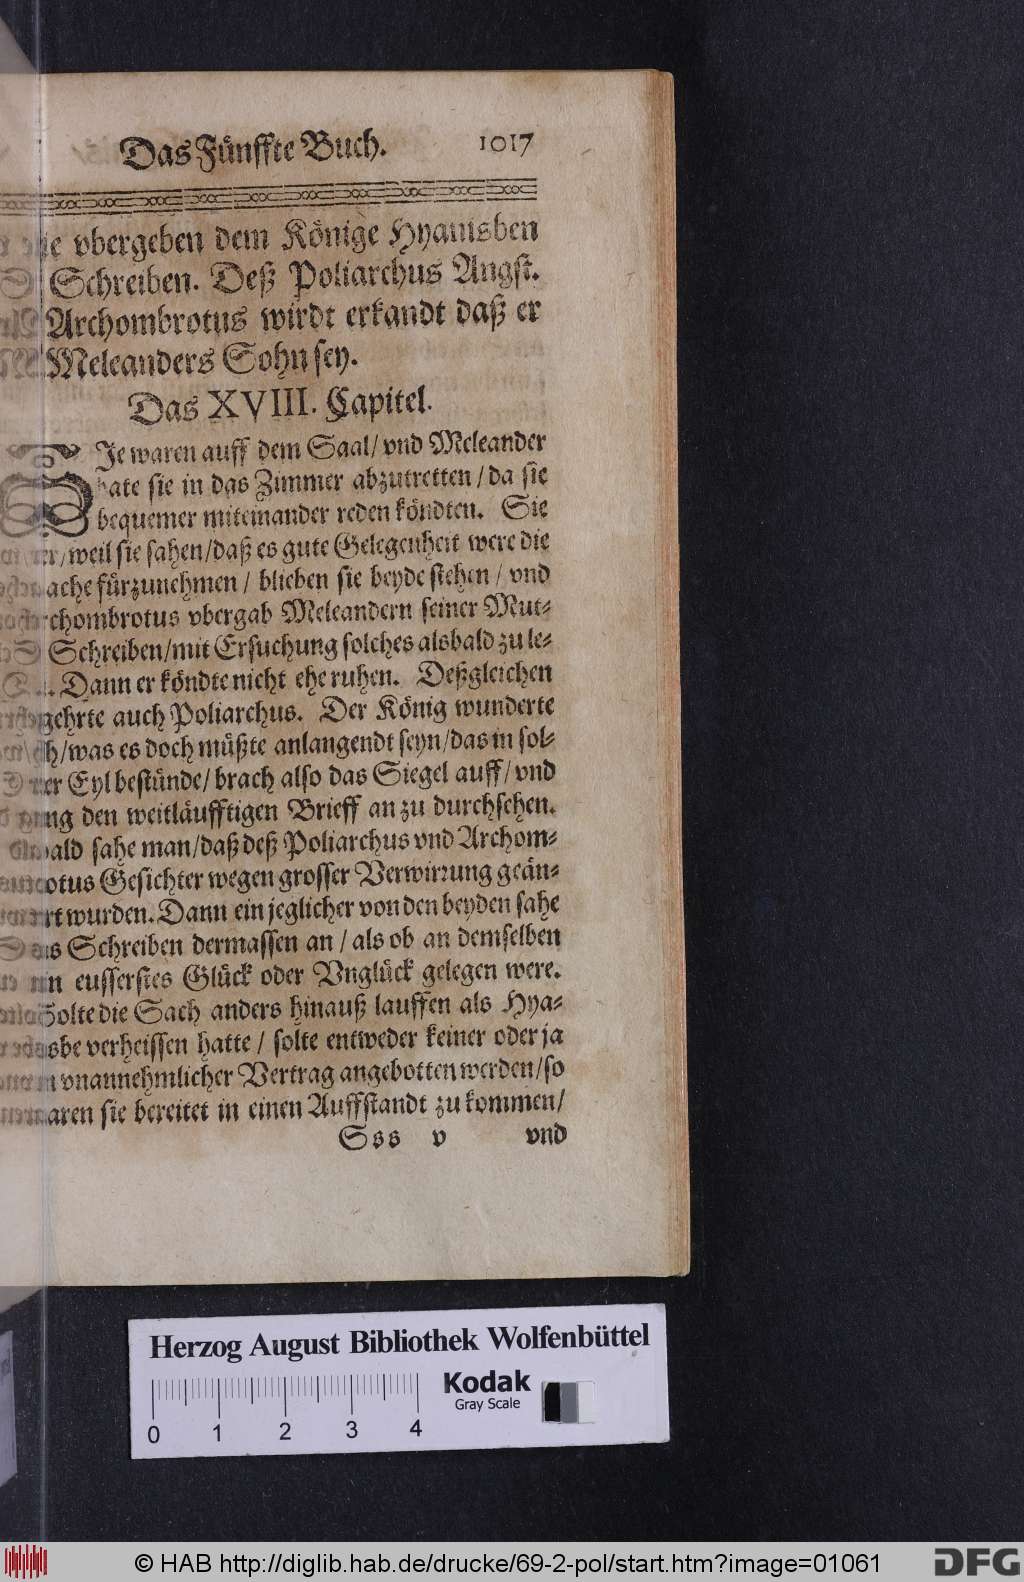 Das Fünffte Buch. 1017
vbergeben dem Könige Hyanisben
Schreiben. Deß Poliarchus Angst.
Archombrotus wirdt erkandt daß er
Meleanders Sohn sey.
Das XVIII. Capitel.
SJe waren auff dem Saal/ vnd Meleander
bate sie in das Zimmer abzutretten/ da sie
bequemer miteinander reden köndten. Sie
weil sie sahen/ daß es gute Gelegenheit were die
fürzunehmen/ blieben sie beyde stehen/ vnd
Archombrotus vbergab Meleandern seiner Mut-
Schreiben/ mit Ersuchung solches alsbald zu le-
Dann er köndte nicht ehe ruhen. Deßgleichen
auch Poliarchus. Der König wunderte
was es doch müßte anlangendt seyn/ das in sol-
Eyl bestünde/ brach also das Siegel auff/ vnd
den weitläufftigen Brieff an zu durchsehen.
sahe man/ daß deß Poliarchus vnd Archom-
brotus Gesichter wegen grosser Verwirrung geän-
wurden. Dann ein jeglicher von den beyden sahe
das Schreiben dermassen an/ als ob an demselben
eusserstes Glück oder Vnglück gelegen were.
Solte die Sach anders hinauß lauffen als Hya-
nisbe verheissen hatte/ solte entweder keiner oder ja
vnannehmlicher Vertrag angebotten werden/ so
waren sie bereitet in einen Auffstandt zu kommen/
Sss v vnd
Herzog August Bibliothek Wolfenbüttel
Kodak
Gray Scale
0 1 2 3 4
© HAB http://diglib.hab.de/drucke/69-2-pol/start.htm?image=01061
DFG